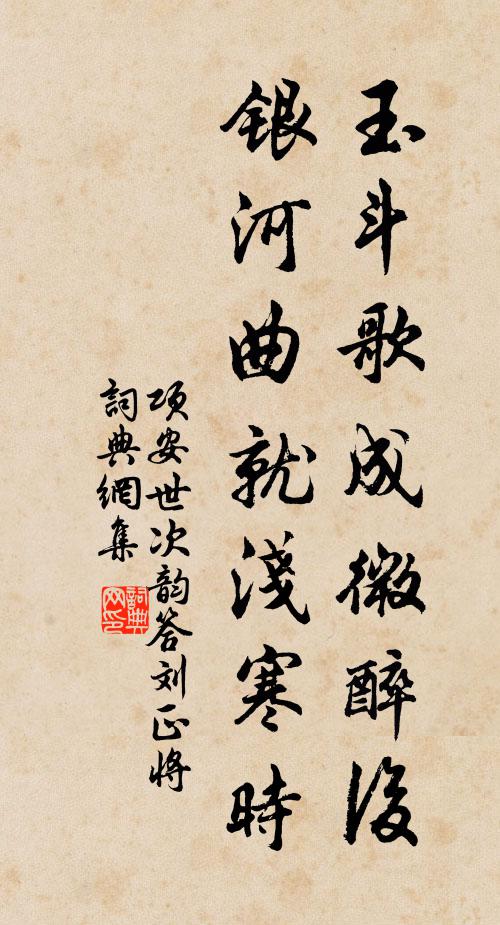 玉斗歌成微醉後
銀河曲就淺寒時
项安世次韵答刘正將
詞典網集
詞典
网印